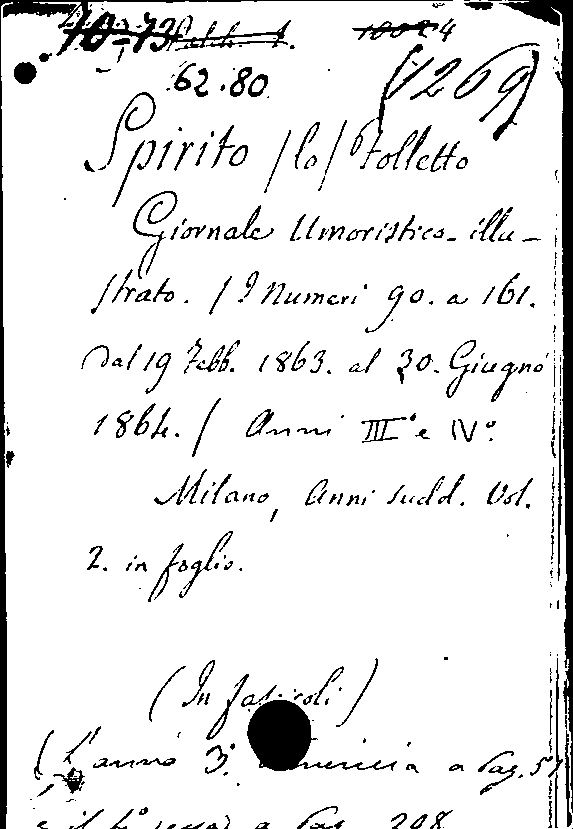 62.80
(1269)
Spirito /lo/ Folletto
Giornale Umoristico-illu-
strato. / I Numeri 90. a 161.
Dal 19 Febb. 1863. al 30. Giugno
1864. / Anni III° e IV°.
Milano, Anni sudd. Vol.
2. in foglio.
(In fascicoli)
(L'anno 3° a Pag. 51
e il 4° a Pag. 208